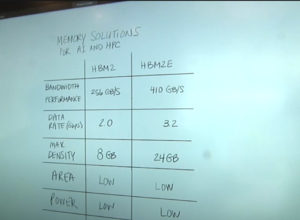 MEMORY SOLUTIONS
FOR AI AND HPC
HBM2 HBM2E
BANDWIDTH PERFORMANCE 256 GB/S 410 GB/S
DATA RATE (Gbps) 2.0 3.2
MAX DENSITY 8 GB 24 GB
AREA LOW LOW
POWER LOW LOW